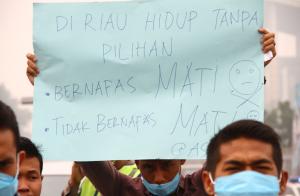 DI RIAU HIDUP TANPA
PILIHAN
• BERNAFAS MATI
• TIDAK BERNAFAS MATI